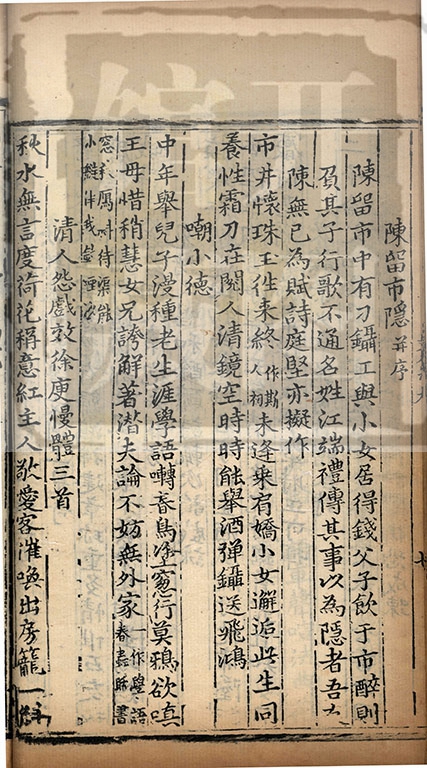 陳留市隱 并序
陳留市中有刁鑷工與小女居得錢父子飲于市醉則
負其子行歌不通名姓江端禮傳其事以為隱者吾友
陳無已為賦詩庭堅亦擬作
市井懷珠玉徃來終 作斯人初 未逢乗肩嬌小女邂逅此生同
養性霜刀在閱人清鏡空時時能舉酒弹鑷送飛鴻
嘲小德
中年舉兒子漫種老生涯學語囀春鳥塗窻行莫鴉欲嗔
王母惜稍慧女兄誇解著潜夫論不妨無外家 一作學語春蟲
小
清人怨戲效徐庾慢體三首
秋水無言度荷花稱意紅主人敬愛客催喚出房籠一